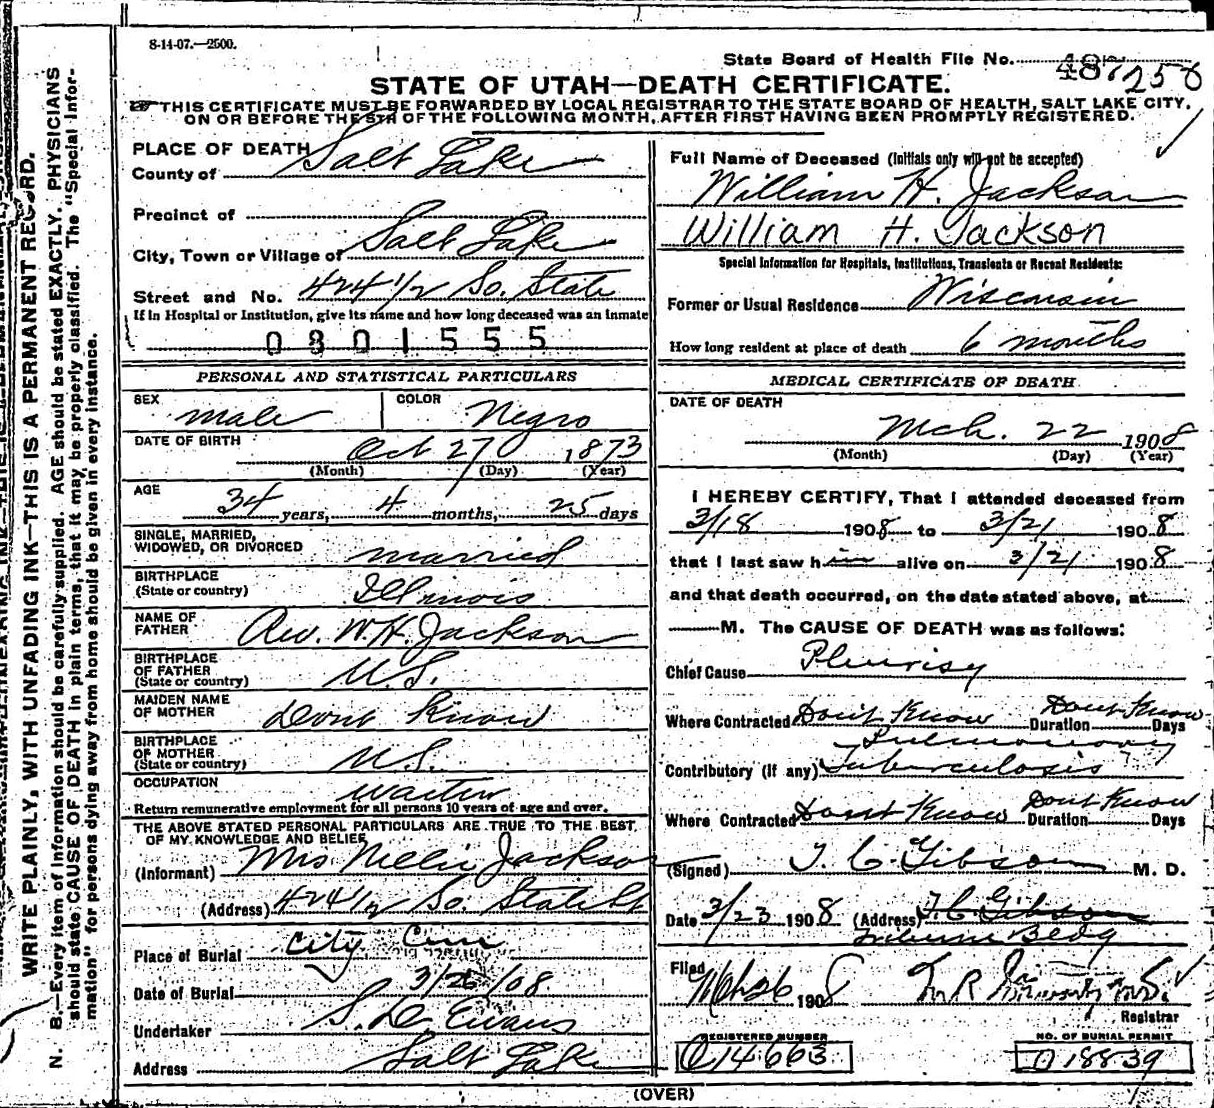 8-14-07.—2500.
State Board of Health File No. 487 258
STATE OF UTAH—DEATH CERTIFICATE.
THIS CERTIFICATE MUST BE FORWARDED BY LOCAL REGISTRAR TO THE STATE BOARD OF HEALTH, SALT LAKE CITY,
ON OR BEFORE THE 5TH OF THE FOLLOWING MONTH, AFTER FIRST HAVING BEEN PROMPTLY REGISTERED.
WRITE PLAINLY, WITH UNFADING INK—THIS IS A PERMANENT RECORD.
N. B.—Every item of information should be carefully supplied. AGE should be stated EXACTLY. PHYSICIANS
should state CAUSE OF DEATH in plain terms, that it may be properly classified. The "Special Infor-
mation" for persons dying away from home should be given in every instance.
PLACE OF DEATH
County of Salt Lake
Precinct of
City, Town or Village of Salt Lake
Street and No. 424 1/2 So. State
If in Hospital or Institution, give its name and how long deceased was an inmate
0801555
PERSONAL AND STATISTICAL PARTICULARS
SEX male COLOR Negro
DATE OF BIRTH Oct 27 1873
(Month) (Day) (Year)
AGE 34 years, 4 months, 25 days
SINGLE, MARRIED,
WIDOWED, OR DIVORCED married
BIRTHPLACE
(State or country) Illinois
NAME OF
FATHER Rev. W. H. Jackson
BIRTHPLACE
OF FATHER
(State or country) U.S.
MAIDEN NAME
OF MOTHER dont know
BIRTHPLACE
OF MOTHER
(State or country) U.S.
OCCUPATION waiter
Return remunerative employment for all persons 10 years of age and over.
THE ABOVE STATED PERSONAL PARTICULARS ARE TRUE TO THE BEST
OF MY KNOWLEDGE AND BELIEF
(Informant) Mrs Nellie Jackson
(Address) 424 1/2 So. State St
Place of Burial City Cem
Date of Burial 3/26/08
Undertaker S. D. Evans
Address Salt Lake
Full Name of Deceased (Initials only will not be accepted)
William H. Jackson
William H. Jackson
Special Information for Hospitals, Institutions, Transients or Recent Residents:
Former or Usual Residence Wisconsin
How long resident at place of death 6 months
MEDICAL CERTIFICATE OF DEATH
DATE OF DEATH
Mch. 22 1908
(Month) (Day) (Year)
I HEREBY CERTIFY, That I attended deceased from
3/18 1908 to 3/21 1908
that I last saw him alive on 3/21 1908
and that death occurred, on the date stated above, at
M. The CAUSE OF DEATH was as follows:
Chief Cause Pleurisy
Where Contracted Dont Know Duration Dont Know Days
Contributory (if any) Pulmonary Tuberculosis
Where Contracted Dont Know Duration Dont Know Days
(Signed) T. C. Gibson M. D.
Date 3/23 1908 (Address) T. C. Gibson
Tribune Bldg
Filed Mch 26 1908 M.D.
Registrar
REGISTERED NUMBER NO. OF BURIAL PERMIT
O 14663 O 18839
(OVER)